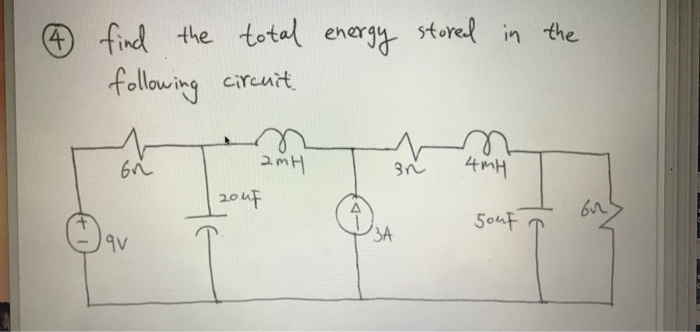 ④ find the total energy stored in the
following circuit.
6Ω
2mH
3Ω
4mH
20uF
+
-
9V
3A
50uF
6Ω